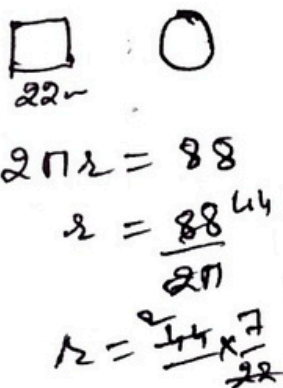 :
22
2πr = 88
r = 88 44
2π
r = 2 44 × 7
22